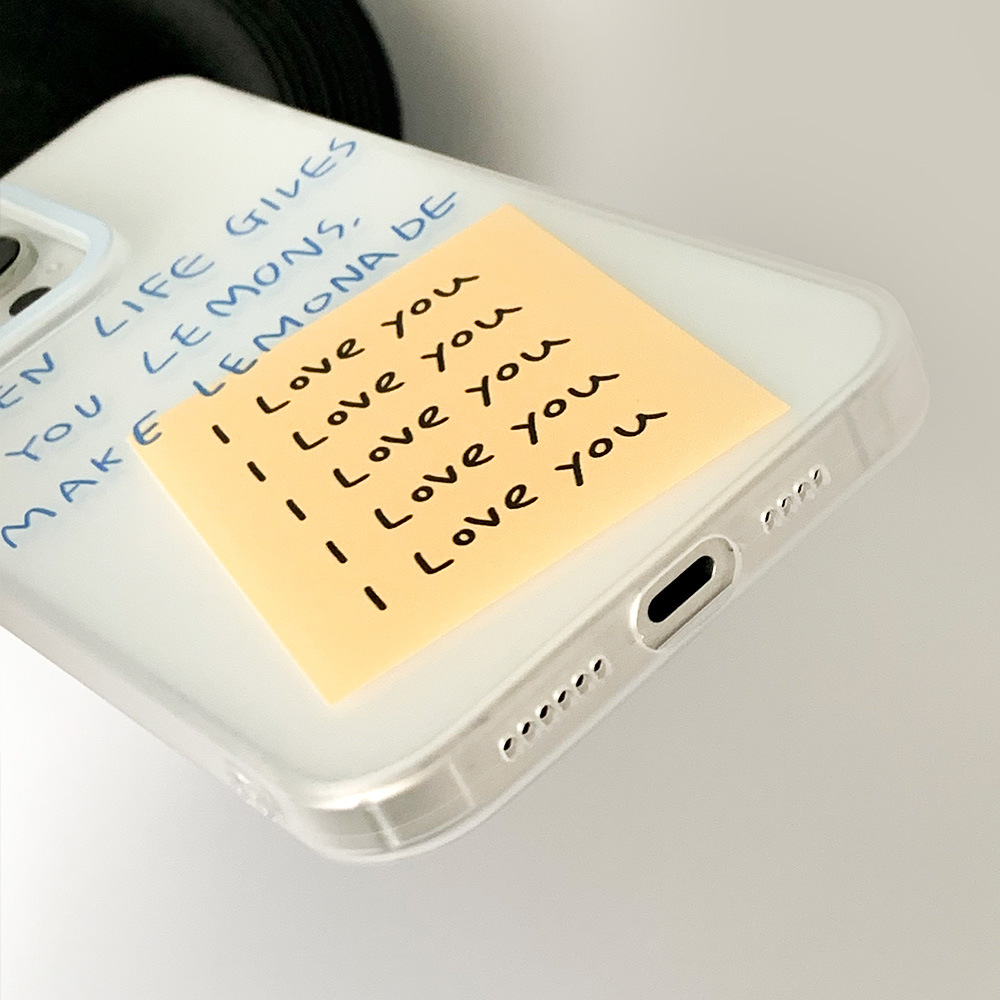 EN LIFE GIVES
YOU LEMONS.
MAKE LEMONADE
I Love you
I Love you
I Love you
I Love you
I Love you